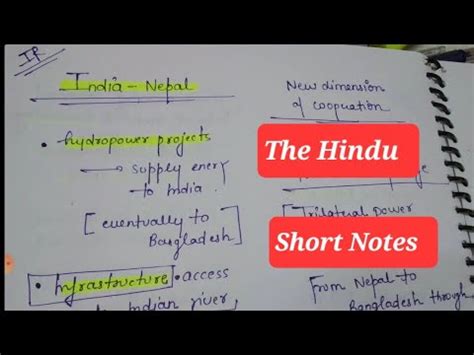 IR
India - Nepal
• hydropower projects
→ supply enery
to India.
[eventually to
Bangladesh]
• Infrastructure • access
Indian river,
New dimension
of coopuation
The Hindu
Trilatual power
Short Notes
From Nepal to
Bangladesh through